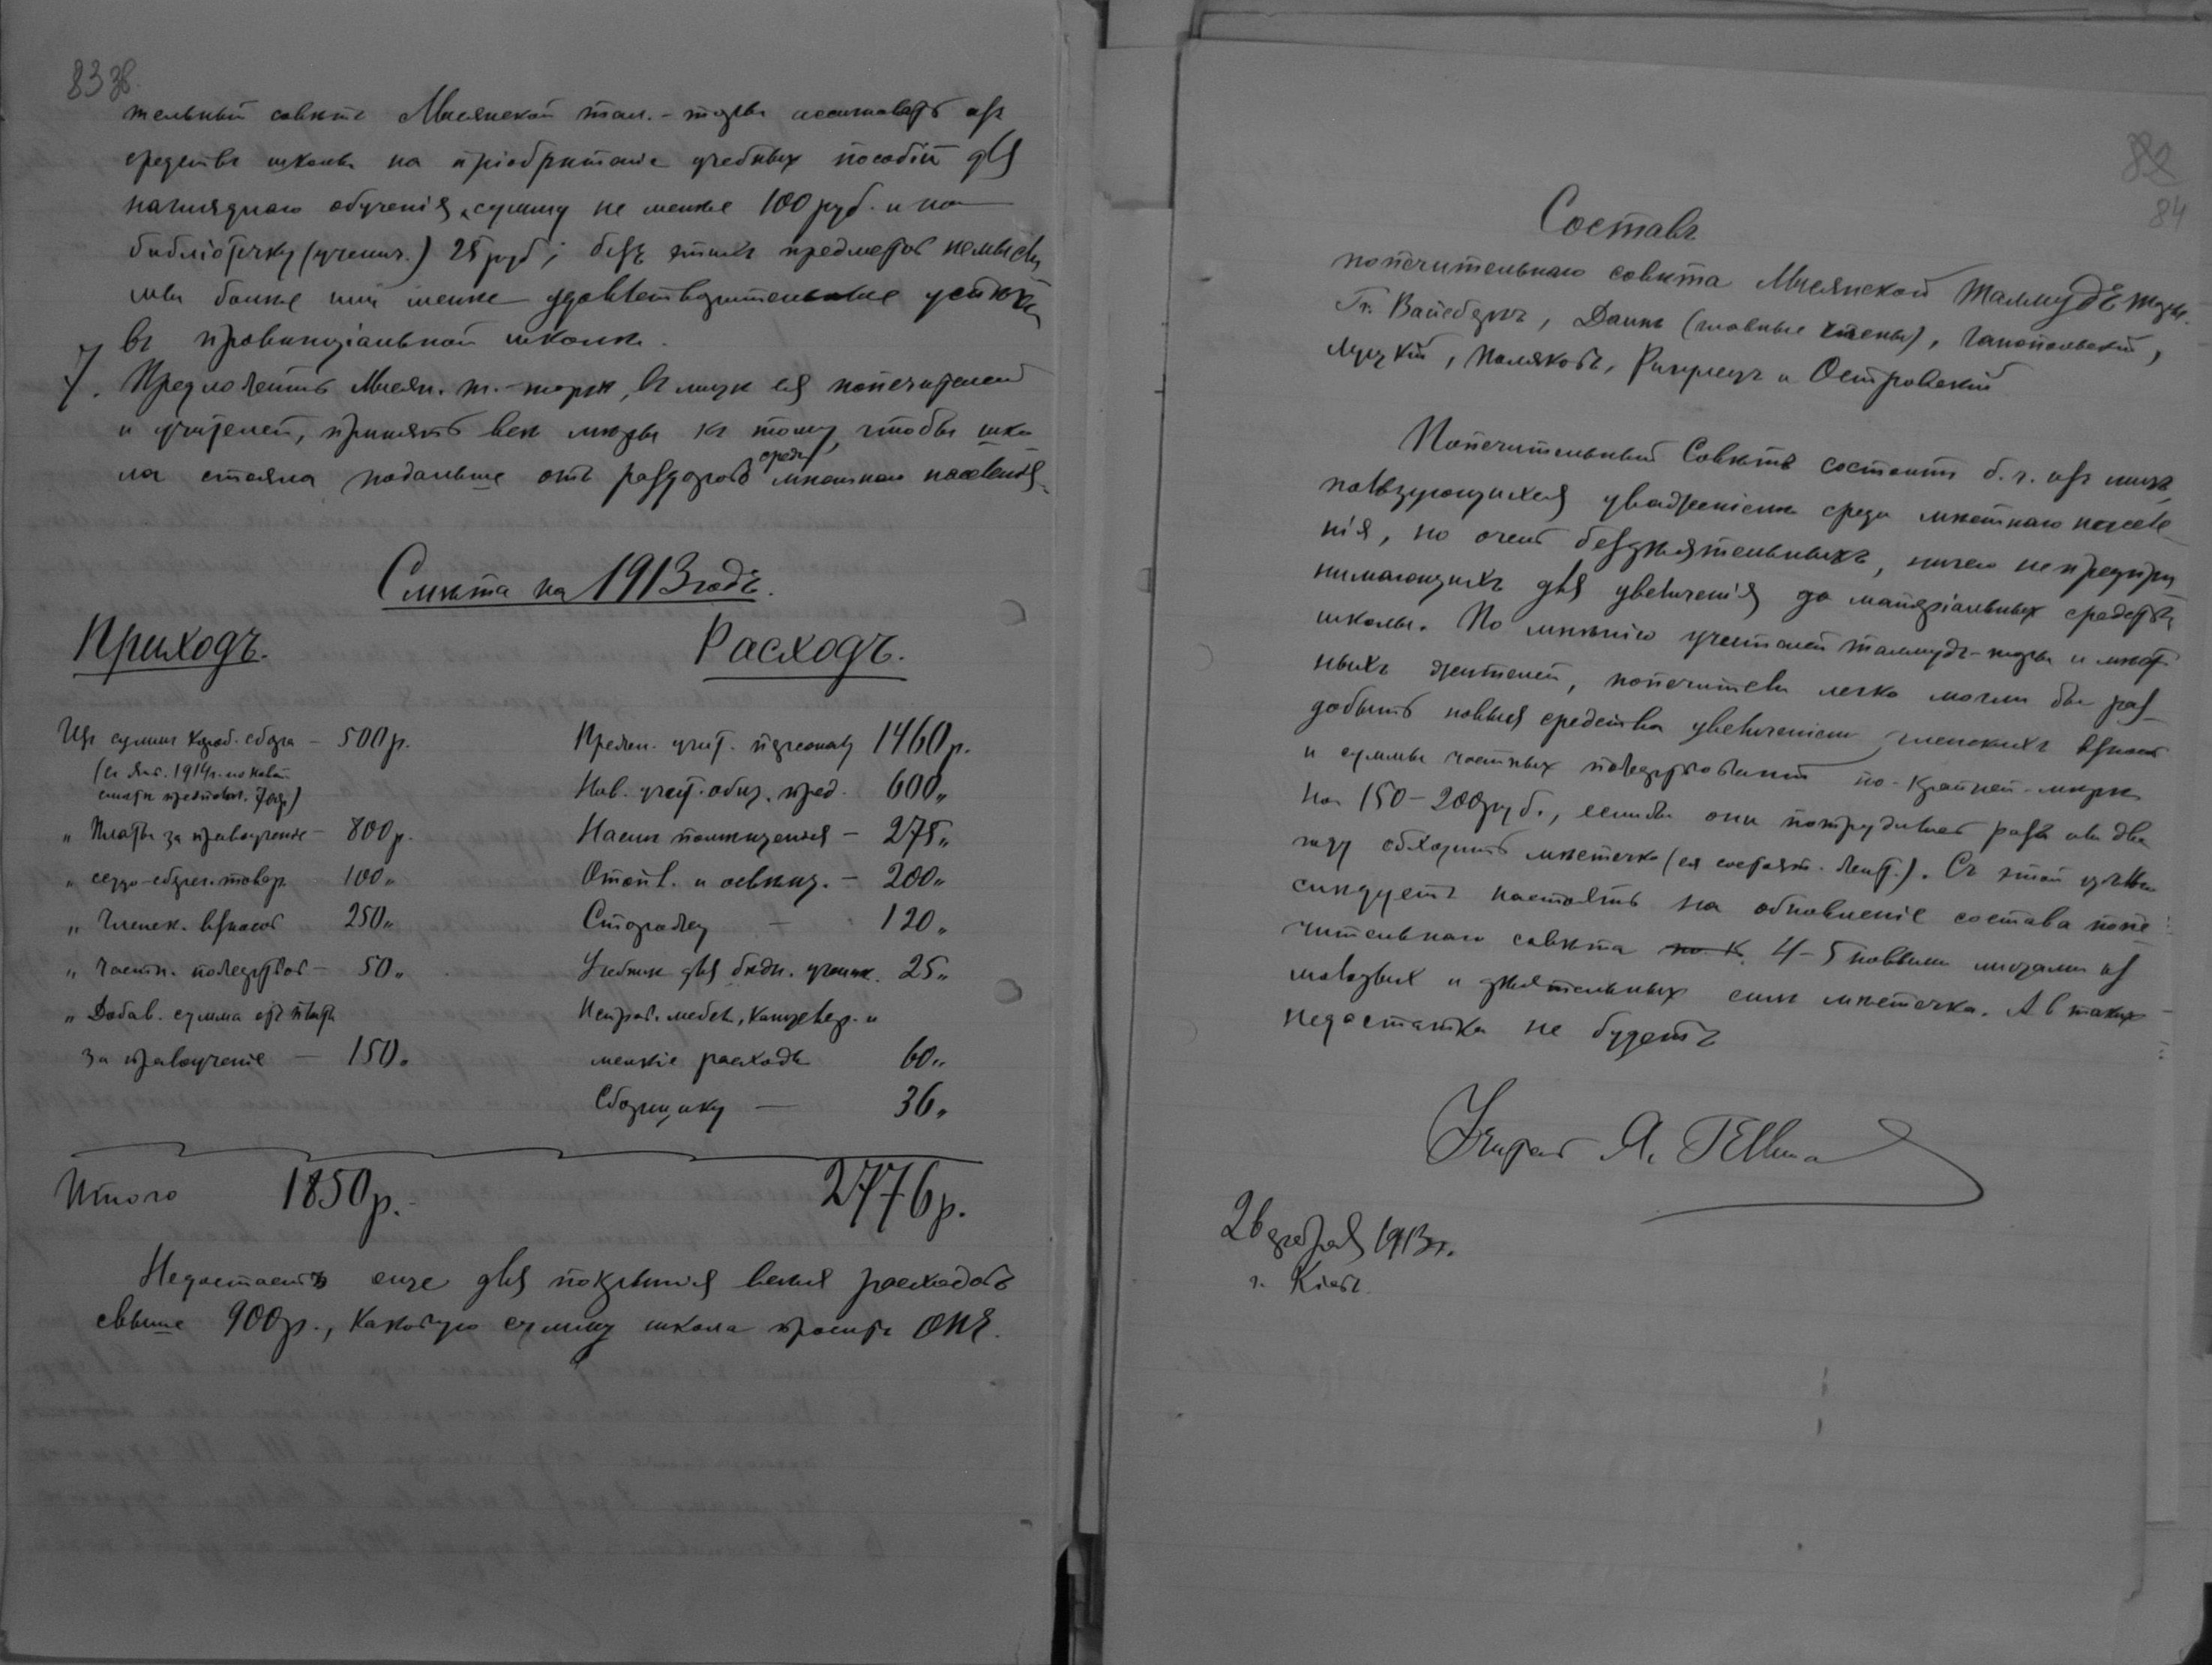 83 зв.
тельный совѣтъ Мнсянской тал.-торы ассигновать изъ
средствъ школы на пріобрѣтеніе учебныхъ пособій для
нагляднаго обученія сумму не менѣе 100 руб. и на
библіотечку (ученич.) 25 руб; безъ этихъ предметов немысли
мы болѣе или менѣе удовлетворительные успѣхи
въ провинціальной школѣ.
7. Предложить Мнсян. т.-торѣ, въ лицѣ ея попечителей
и учителей, принять всѣ мѣры къ тому, чтобы шко
ла стояла подальше отъ раздоровъ среди мѣстнаго населенія.
Смѣта на 1913 годъ.
Приходъ. Расходъ.
Изъ суммъ короб. сбора – 500 р. Препод. учит. персоналу 1460 р.
(съ Янв. 1914 г. по новой Нов. учит. общ. пред. 600 "
смѣтѣ 700 р.)
" Платы за правоученіе – 800 р. Наемъ помѣщенія – 275 "
" ссудо-сберег. товар. 100 " Отопл. и освѣщ. – 200 "
" Членск. взносов 250 " Сторожу – 120 "
" Частн. пожертвов – 50 " Учебник. для бѣдн. ученик. 25 "
" Добав. сумма отъ платы Исправ. мебели, канцеляр. и
за правоученіе – 150 " мелкіе расходы 60 "
Сборщику – 36 "
Итого 1850 р. 2776 р.
Недостаетъ еще для покрытія всѣхъ расходовъ
свыше 900 р., каковую сумму школа проситъ ОПЕ.
82
84
Составъ
попечительнаго совѣта Мнсянской Талмудъ Торы.
Гг. Вайсбергъ, Даинъ (главные члены), Ганопольскій,
Луцкій, Поляковъ, и Островскій
Попечительный Совѣтъ состоитъ б. ч. изъ лицъ,
пользующихся уваженіемъ среди мѣстнаго населе
нія, но очень бездѣятельныхъ, ничего не предпри
нимающихъ для увеличенія матеріальныхъ средствъ
школы. По мнѣнію учителей талмудъ-торы и мѣст
ныхъ жителей, попечители легко могли бы раз
добыть новыя средства увеличеніемъ членскихъ взносов
и суммы частныхъ пожертвованій по-крайней-мѣрѣ
на 150–200 руб., если бы они потрудились разъ или два
въ году обходить мѣстечко. Съ этой цѣлью
слѣдуетъ настоять на обновленіе состава попе
чительнаго совѣта 4–5 новыми лицами изъ
молодых и дѣятельных силъ мѣстечка. А в таких
недостатка не будетъ
Учитель Я. Гельма
26 февраля 1913 г.
г. Кіевъ.